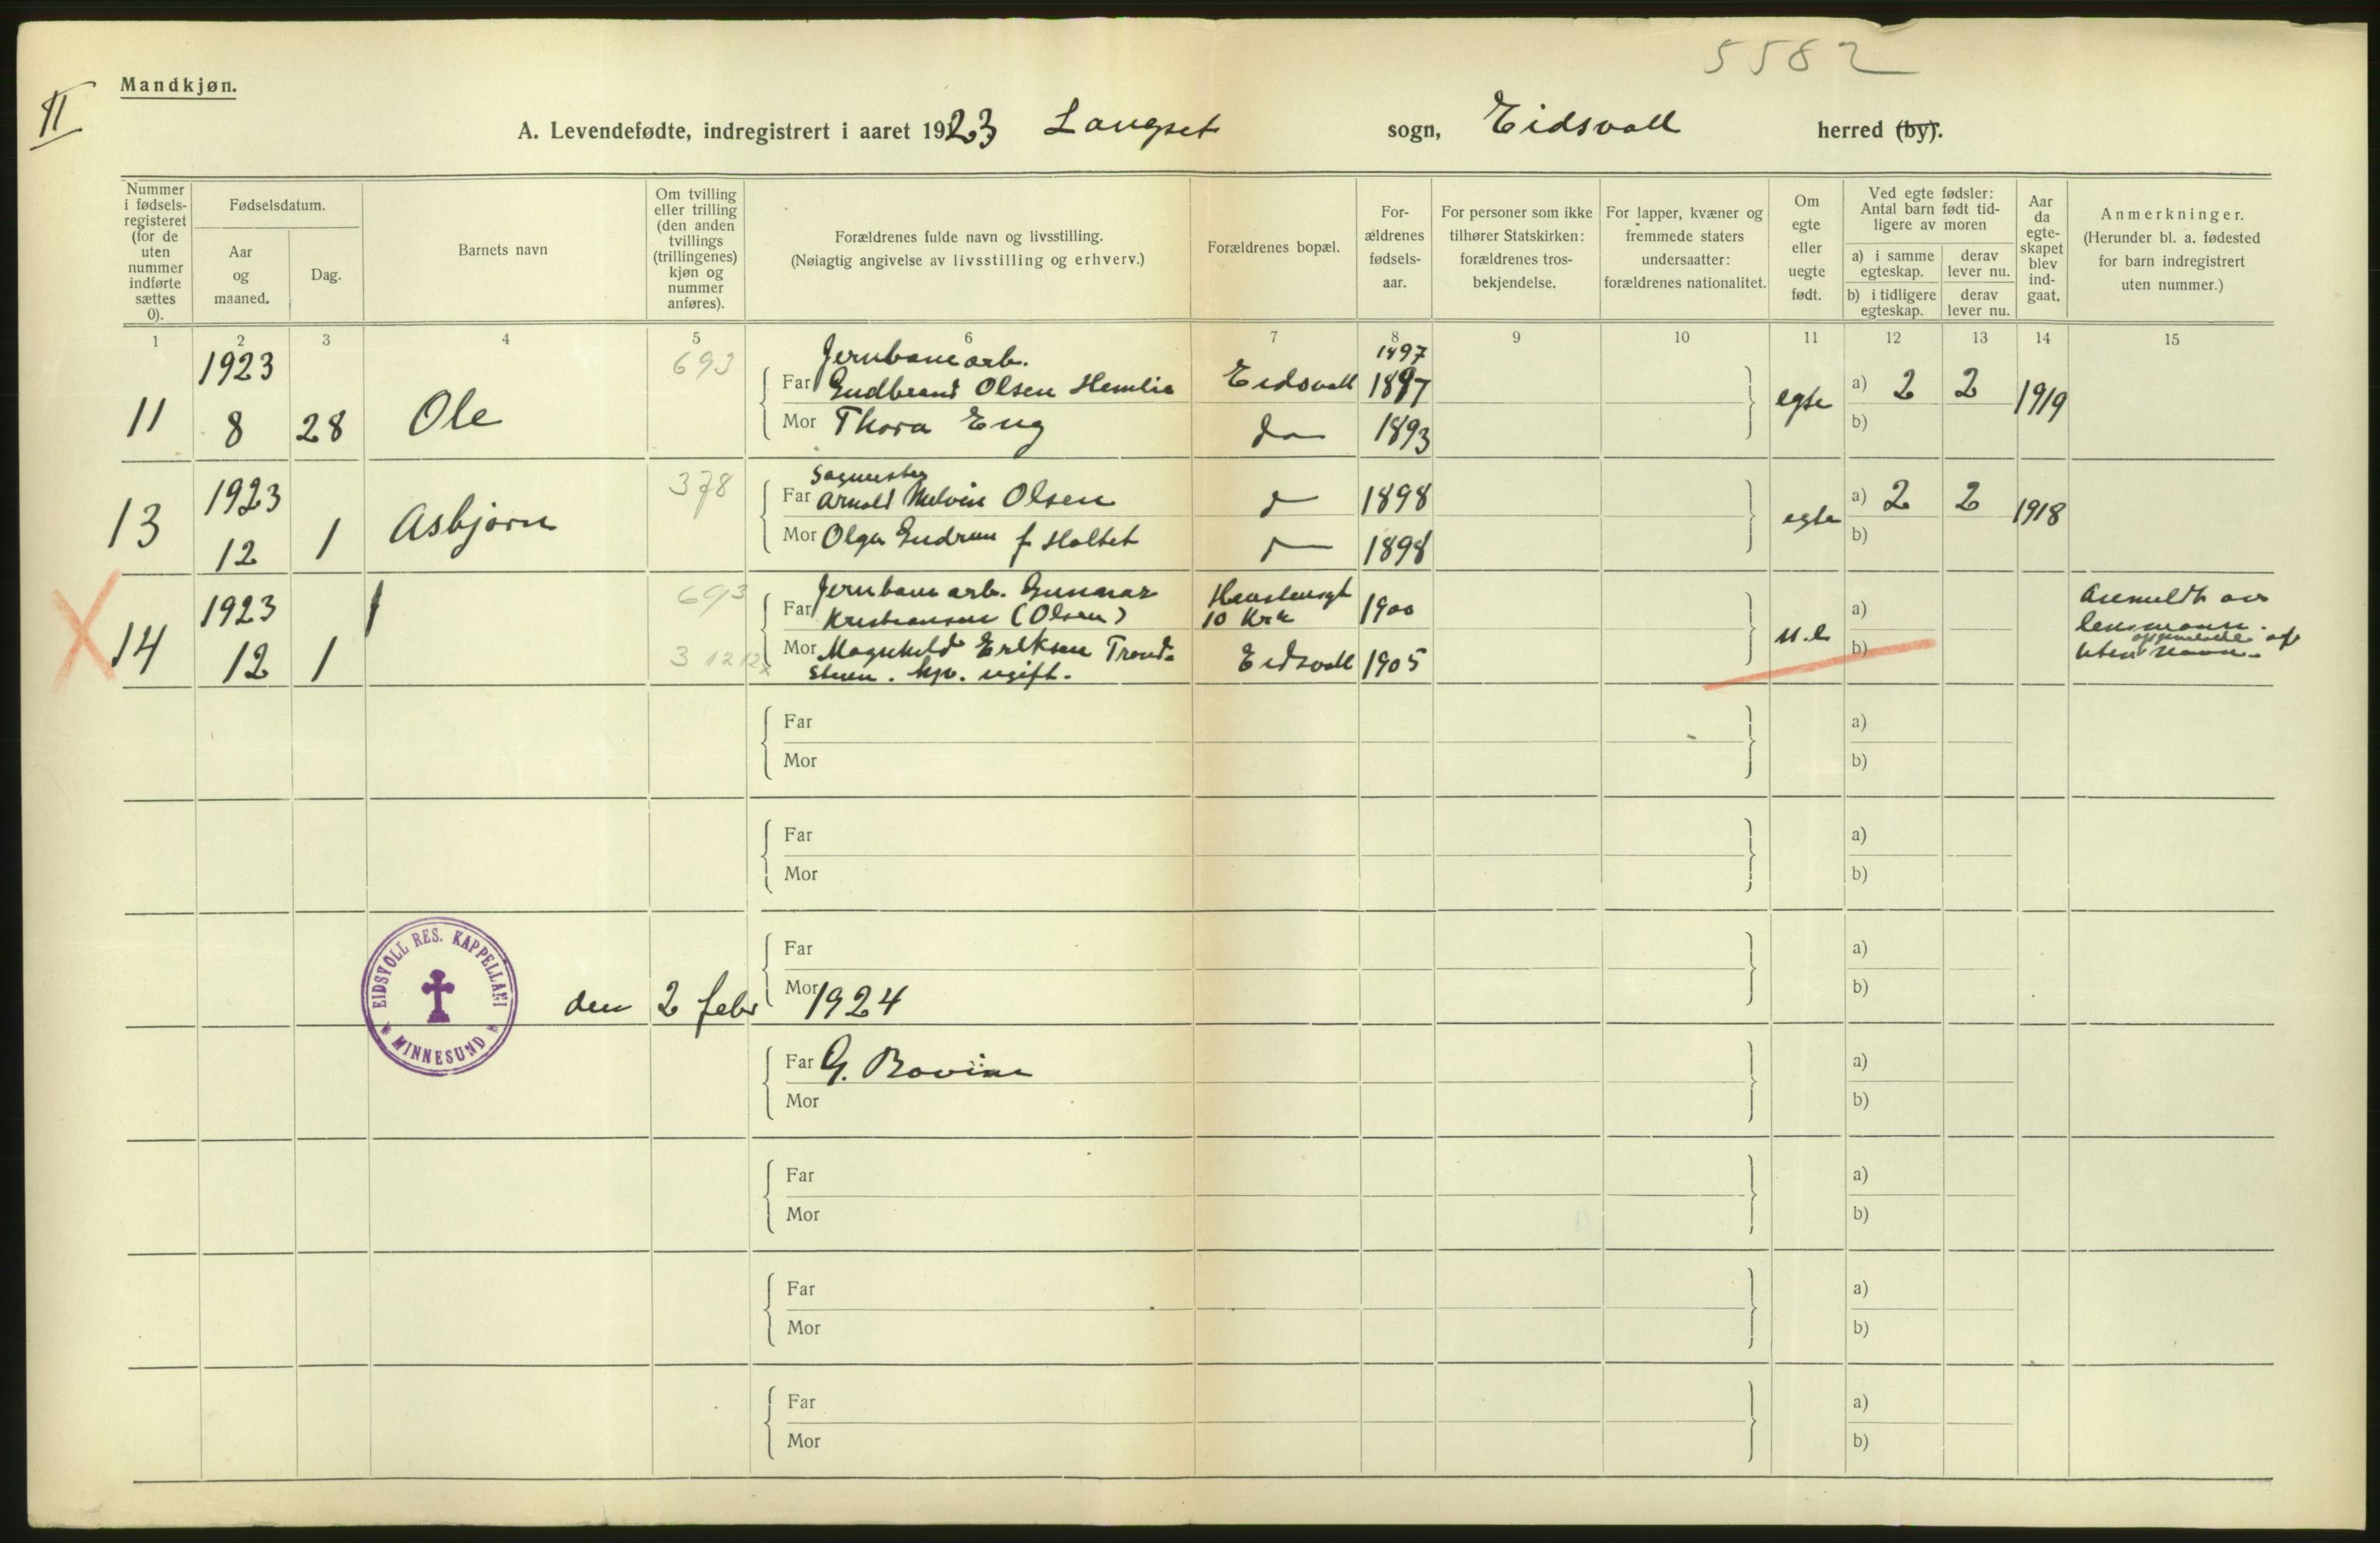 5582
II
Mandkjøn.
A. Levendefødte, indregistrert i aaret 1923 Langset sogn, Eidsvoll herred (by).
Nummer i fødsels-registeret (for de uten nummer indførte sættes 0).
Fødselsdatum.
Aar og maaned.
Dag.
Barnets navn
Om tvilling eller trilling (den anden tvillings (trillingenes) kjøn og nummer anføres).
Forældrenes fulde navn og livsstilling.
(Nøiagtig angivelse av livsstilling og erhverv.)
Forældrenes bopæl.
For-ældrenes fødsels-aar.
For personer som ikke tilhører Statskirken: forældrenes tros-bekjendelse.
For lapper, kvæner og fremmede staters undersaatter: forældrenes nationalitet.
Om egte eller uegte født.
Ved egte fødsler: Antal barn født tid-ligere av moren
a) i samme egteskap.
derav lever nu.
b) i tidligere egteskap.
derav lever nu.
Aar da egte-skapet blev ind-gaat.
Anmerkninger.
(Herunder bl. a. fødested for barn indregistrert uten nummer.)
1 2 3 4 5 6 7 8 9 10 11 12 13 14 15
11 1923 8 28 Ole 693
Jernbanearb.
Far Gudbrand Olsen Hemlie Eidsvoll 1897 1897
Mor Thora Eng do 1893
egte a) 2 2 1919
b)
13 1923 12 1 Asbjørn 378
Sagmester
Far Arnold Melvin Olsen 1898
Mor Olga Gudrun f Holtet 1898
egte a) 2 2 1918
b)
14 1923 12 1 693
Jernbanearb. Gunnar
Far Kristiansen (Olsen) 10 Kra 1900
3 12 12
Mor Magnhild Eriksen Trond-
stuen. ugift. Eidsvoll 1905
u.e a)
b)
Anmeldt av
lensmann.
uten navn.
Far a)
Mor b)
Far a)
Mor b)
Far a)
EIDSVOLL RES. KAPPELLANI
MINNESUND
den 2 febr 1924
Mor b)
Far G. Bovim a)
Mor b)
Far a)
Mor b)
Far a)
Mor b)
Far a)
Mor b)